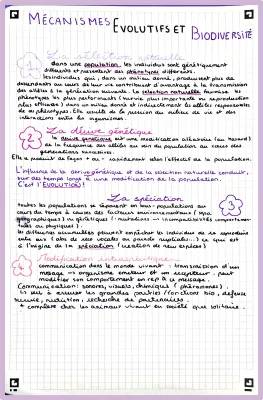 MÉCANISMES ÉVOLUTIFS ET BIODIVERSITÉ
1
dans une population, les individus sont génétiquement
différents et présentent des phénotypes différents.
Les individus qui, dans un milieu donné, produisent plus de
descendants au cours de leur vie contribuent d'avantage à la transmission
des allèles à la génération suivante. La sélection naturelle favorise les
phénotypes les plus performants (survie plus importante ou reproduction
plus efficace) dans un milieu donné et indirectement les allèles responsables
de ce phénotype. Elle résulte de la pression du milieu de vie et des
interactions entre les organismes.
2
La dérive génétique
La dérive génétique est une modification aléatoire (au hasard)
de la fréquence des allèles au sein du population au cours des
générations successives.
Elle se produit de façon + ou - rapidement selon l'effectif de la population.
L'influence de la dérive génétique et de la sélection naturelle conduit,
sur des temps longs à une modification de la population.
C'est l'ÉVOLUTION!
La spéciation
3
toutes les populations se séparent en plusieurs populations au
cours du temps à cause des facteurs environnementaux
géographiques) ou génétiques (mutations → incompatibilités comportementales
ou physiques).
Les différences accumulées peuvent empêcher les individus de se reproduire
entre eux ce qui est
à l'origine de la spéciation (création de new espèces)
4
communication dans le monde vivant : transmission d'un
message → organisme émetteur et un récepteur. peut
modifier son comportement en rép à ce message.
Communication : sonores, visuels, chimiques (phéromones).
Et sert à assurer les grandes fonctions bio, défense
survie, nutrition, recherche de partenaires.
+ complexe chez les animaux vivant en société que solitaire.